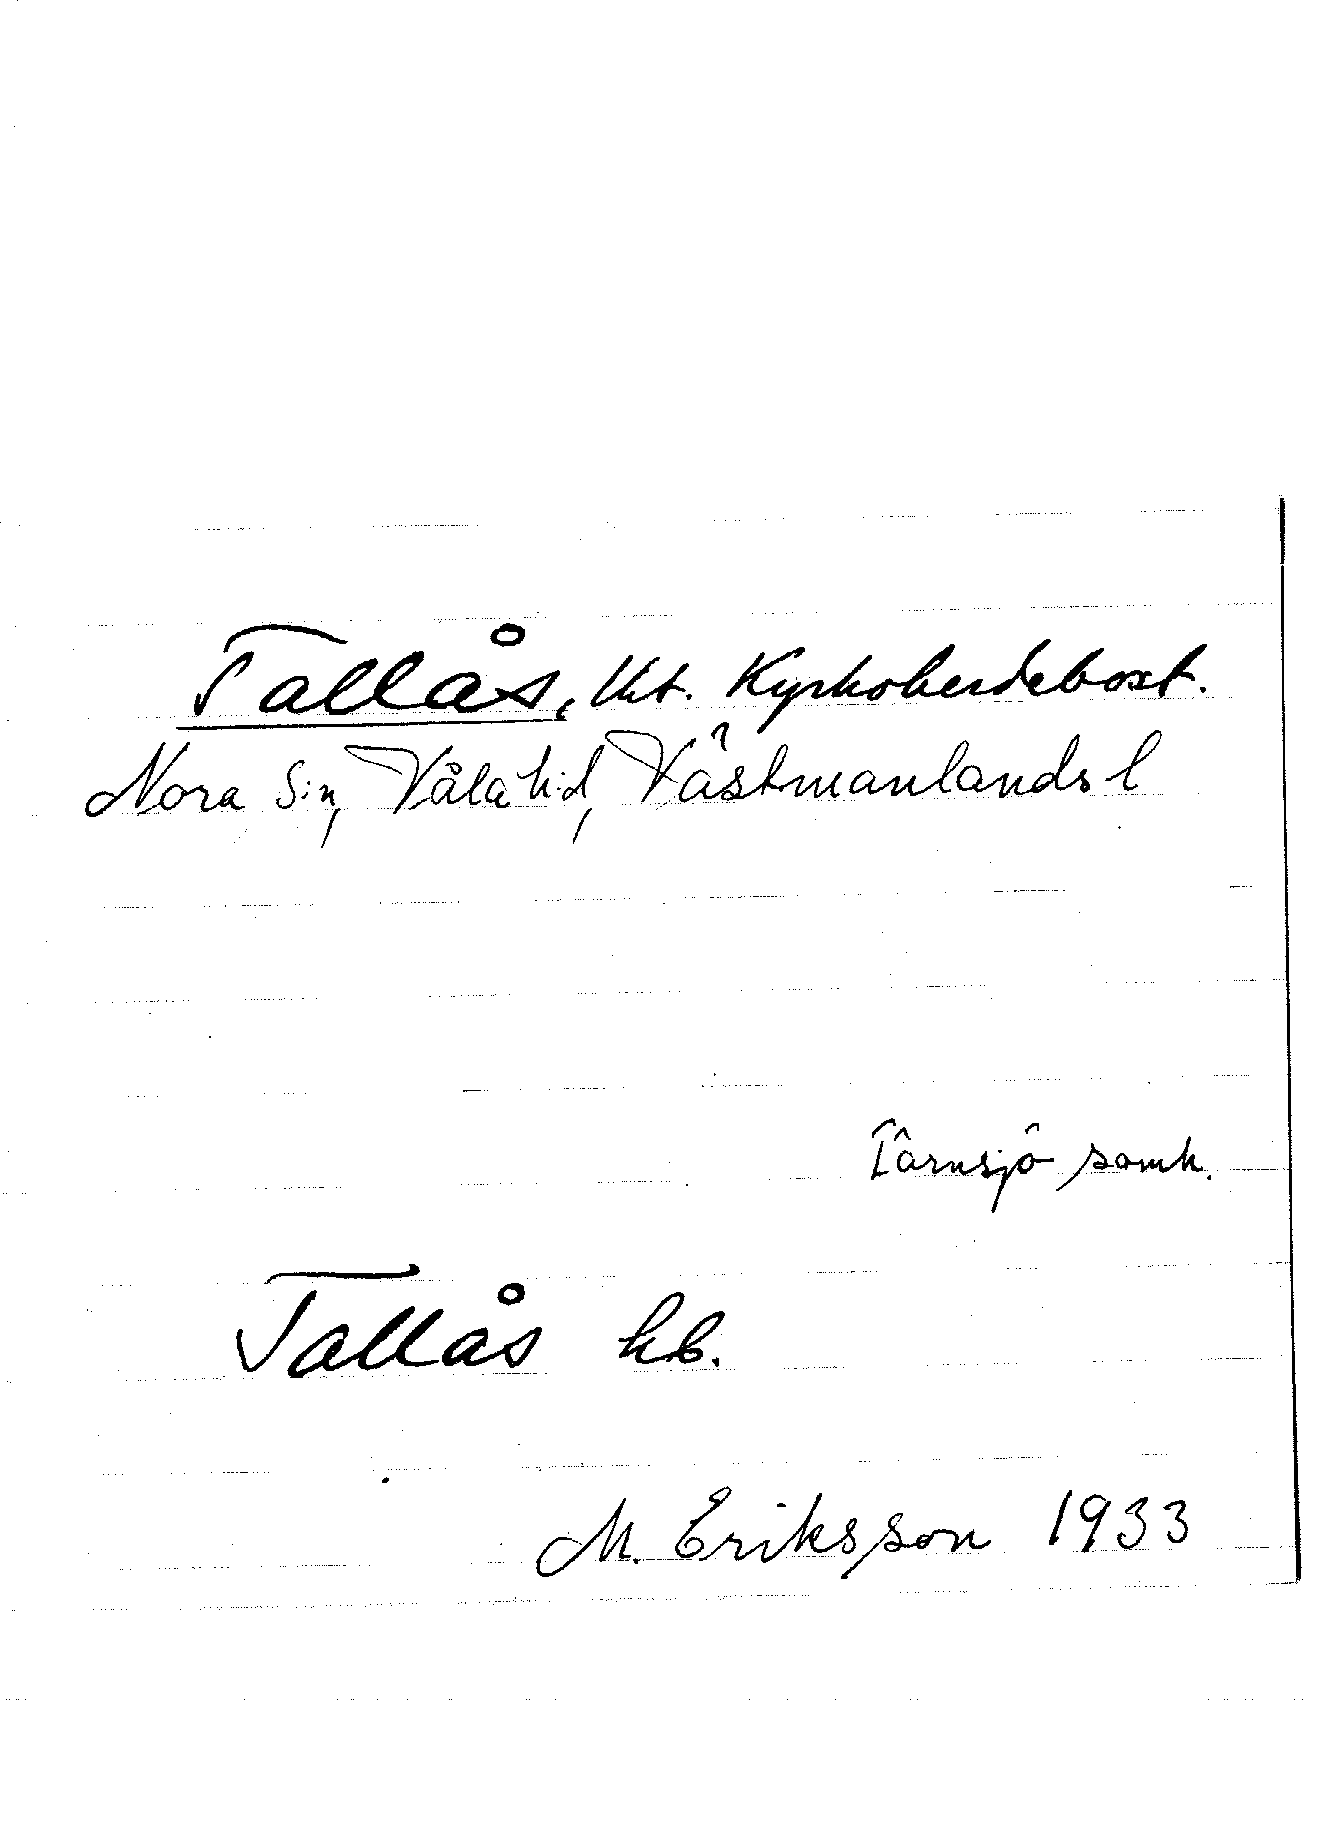 Tallås, Kt. Kyrkoherdebost.
Nora S:n, Våla h:d, Västmanlands l
Tärnsjö samh.
Tallås hb.
M. Eriksson 1933